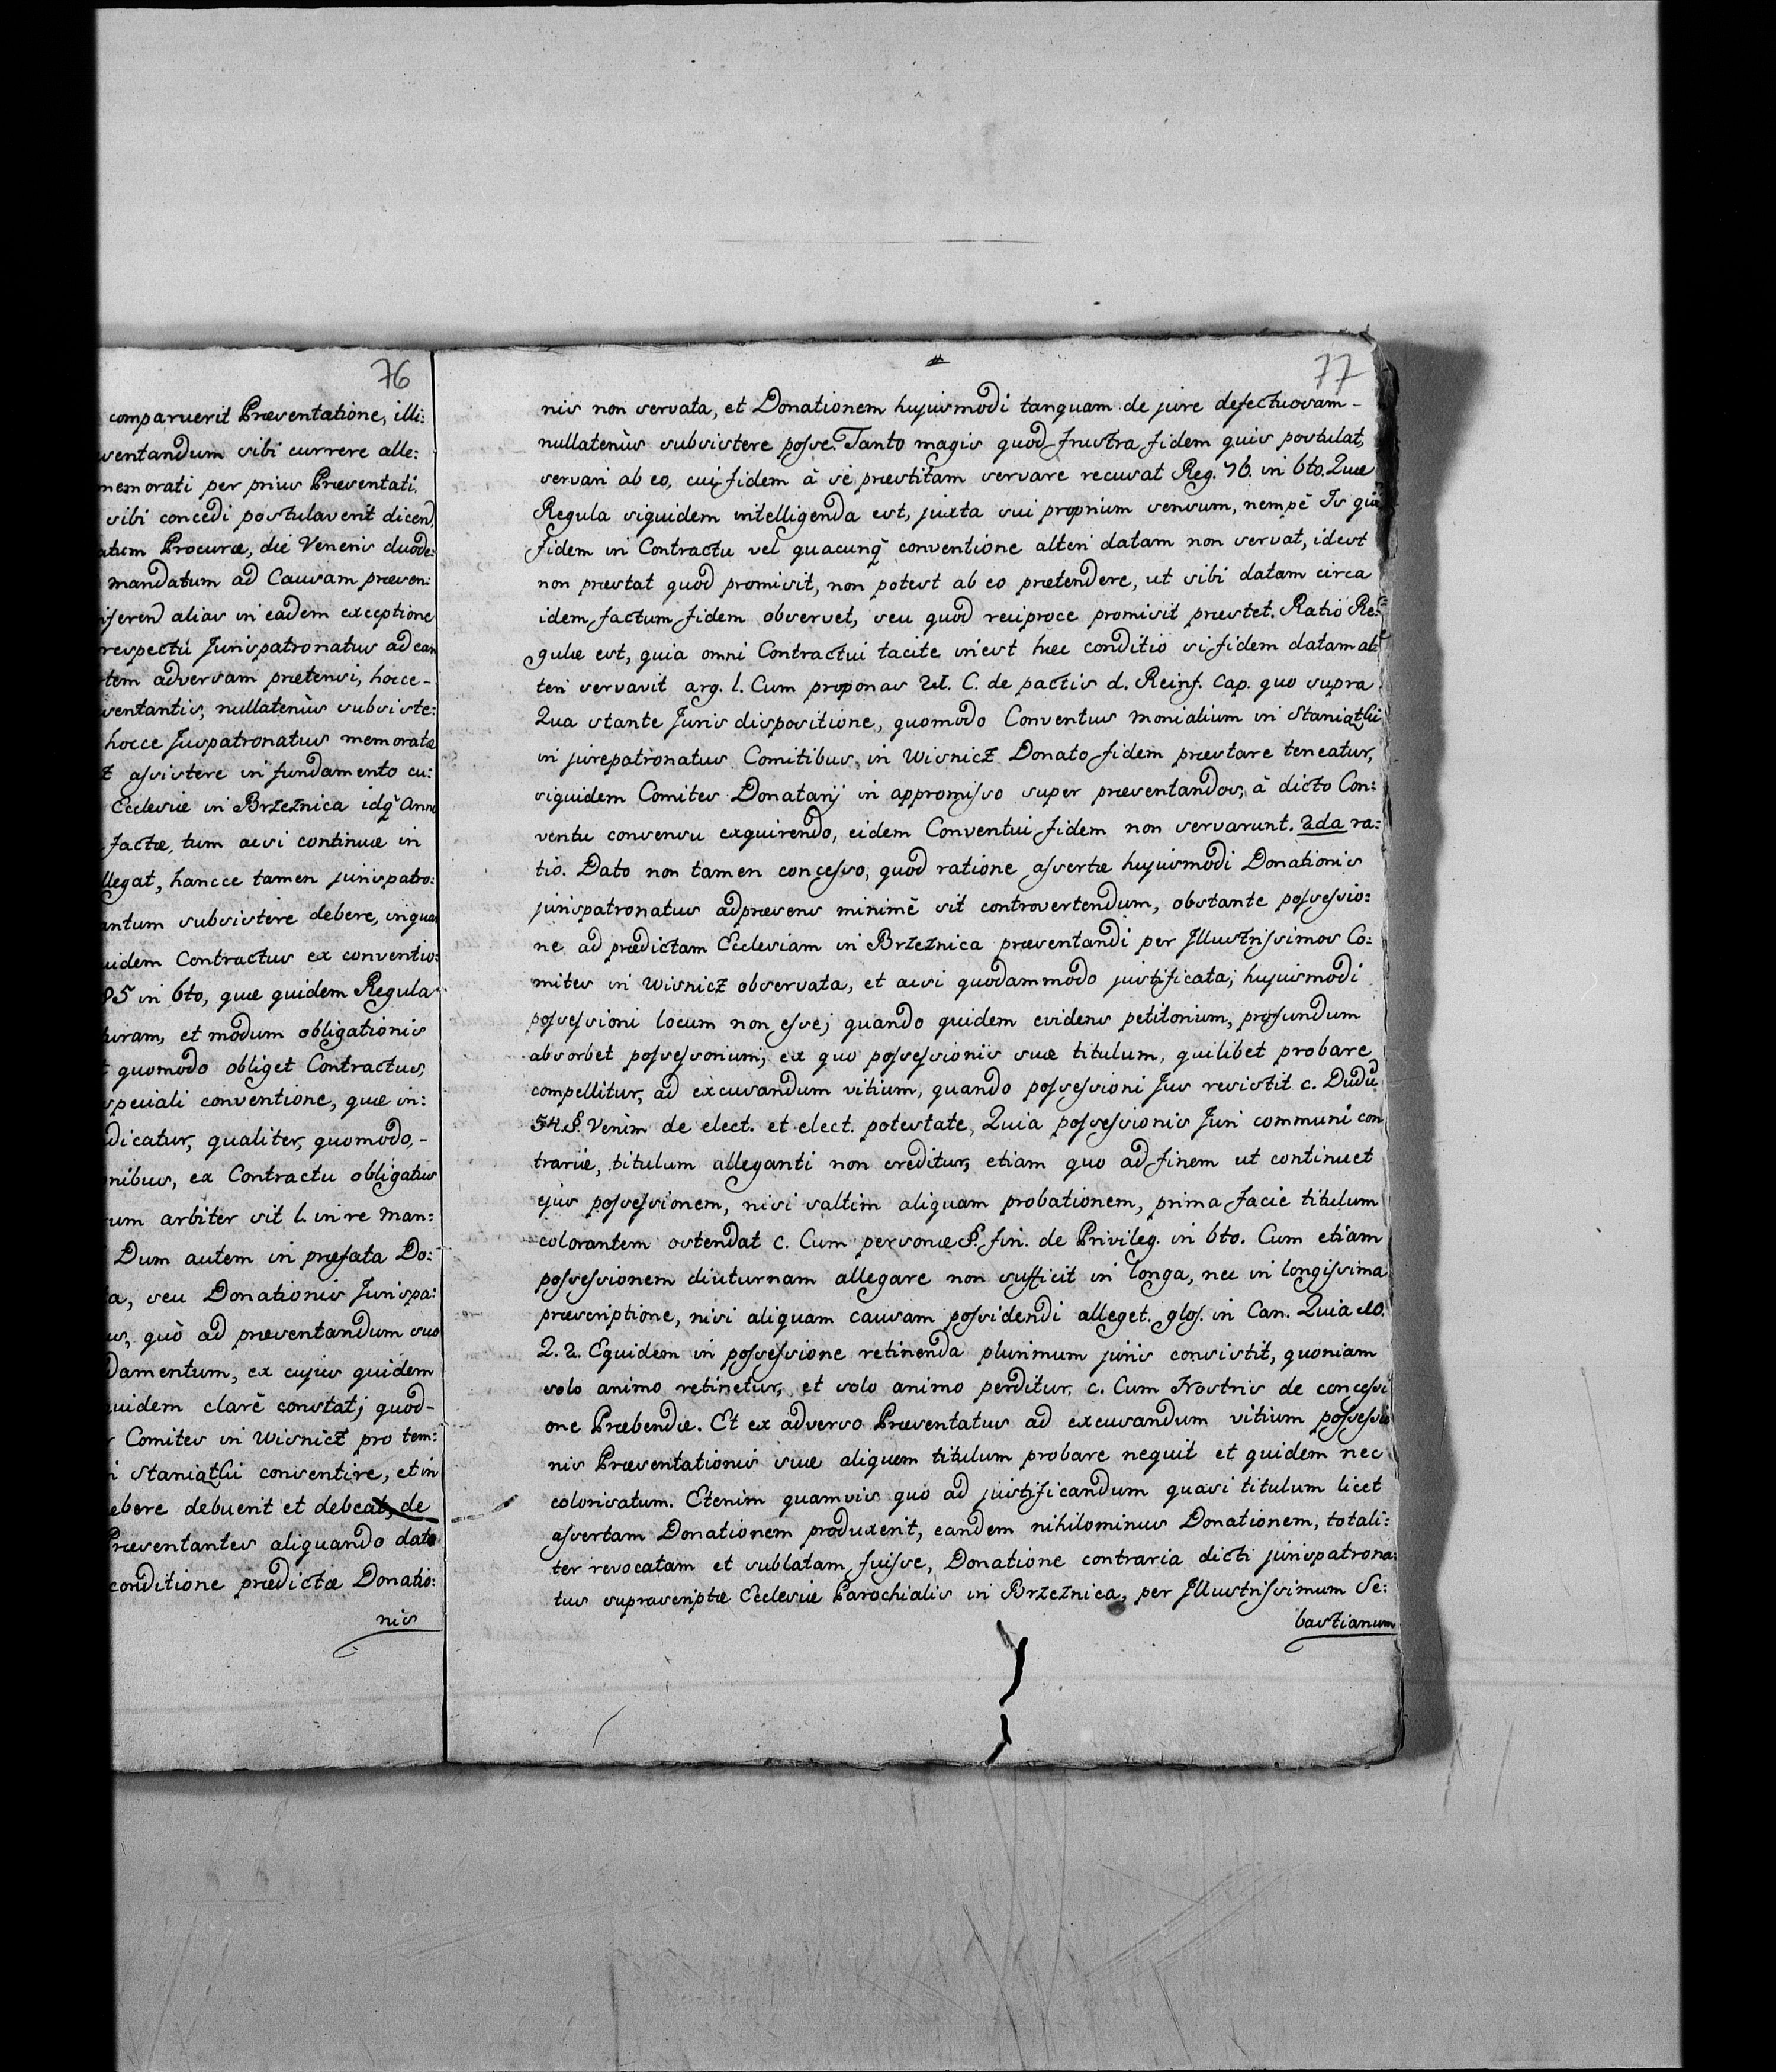 76
comparuerit Præsentatione, illi:
sentandum sibi currere alle:
memorati per prius Præsentati
sibi concedi postulaverit dicend,
atum Procuræ, die Veneris duode:
mandatum ad Causam præsen:
ferend alias in eadem exceptione
respectû Jurispatronatus ad ean
tem adversam prætensi, hocce-
sentantis, nullatenùs subsiste:
hocce Juspatronatus memoratæ
assistere in fundamento cu:
Ecclesiæ in Brzeznica idq̃ Anno
factæ, tum acsi continuæ in
llegat, hancce tamen jurispatro:
antum subsistere debere, in qua
uidem Contractus ex conventio:
85 in 6to, quæ quidem Regula
turam, et modum obligationis
quomodo obliget Contractus,
speciali conventione, quæ in:
dicatur, qualiter, quomodo,-
onibus, ex Contractu obligatus
um arbiter sit l. in re man:
Dum autem in præfata Do:
a, seu Donationis Jurispa:
us, quò ad præsentandum suo
damentum, ex cujus quidem
uidem clarè constat; quod-
Comites in Wisnicz pro tem:
Staniatki consentire, et in
ebere debuerit et debeat, de
Præsentantes aliquando dato
conditione prædictæ Donatio:
nis
77
nis non servata, et Donationem hujusmodi tanquam de jure defectuosam-
nullatenùs subsistere posse. Tanto magis quod frustra fidem quis postulat,
servari ab eo, cui fidem à sè præstitam servare recusat Reg. 76. in 6to. Quæ
Regula siquidem intelligenda est, juxta sui proprium sensum, nempè Is qui
fidem in Contractu vel quacunq̃ conventione alteri datam non servat, idest
non præstat quod promisit, non potest ab eo prætendere, ut sibi datam circa
idem factum fidem observet, seu quod reciproce promisit præstet. Ratio Re:
gulæ est, quia omni Contractui tacite inest hæc conditio si fidem datam al:
teri servavit arg. l. Cum proponas C. de pactis d. Reinf. Cap. quo supra
Qua stante Juris dispositione, quomodo Conventus Monialium in Staniatki
in jurepatronatus Comitibus in Wisnicz Donato fidem præstare teneatur,
siquidem Comites Donatarij in appromisso super præsentandos, à dicto Con:
ventu consensu exquirendo, eidem Conventui fidem non servarunt. 2da ra:
tio. Dato non tamen concesso, quod ratione assertæ hujusmodi Donationis
jurispatronatus adpræsens minimè sit controvertendum, obstante possessio:
ne ad prædictam Ecclesiam in Brzeznica præsentandi per Illustrissimos Co:
mites in Wisnicz observata, et acsi quodammodo justificata; hujusmodi
possessioni locum non esse; quando quidem evidens petitorium, profundum
absorbet possessorium; ex quo possessionis suæ titulum, quilibet probare
compellitur, ad excusandum vitium, quando possessioni Jus resistit c. Dudū
54. §. Verùm de elect. et elect. potestate, Quia possessionis Juri communi con
trariæ, titulum alleganti non creditur, etiam quo ad finem ut continuet
ejus possessionem, nisi saltim aliquam probationem, prima facie titulum
colorantem ostendat c. Cum personæ §. fin. de Privileg. in 6to. Cum etiam
possessionem diuturnam allegare non sufficit in longa, nec in longissima
præscriptione, nisi aliquam causam possidendi alleget. glos. in Can. Quia
Q. 2. Equidem in possessione retinenda plurimum juris consistit, quoniam
solo animo retinetur, et solo animo perditur. c. Cum Nostris de concessi
one Præbendæ. Et ex adverso Præsentatus ad excusandum vitium possessio
nis Præsentationis suæ aliquem titulum probare nequit et quidem nec
colorisatum. Etenim quamvis quo ad justificandum quasi titulum licet
assertam Donationem produxerit, eandem nihilominus Donationem, totali:
ter revocatam et sublatam fuisse, Donatione contraria dicti jurispatrona:
tus suprascriptæ Ecclesiæ Parochialis in Brzeznica, per Illustrissimum Se:
bastianum